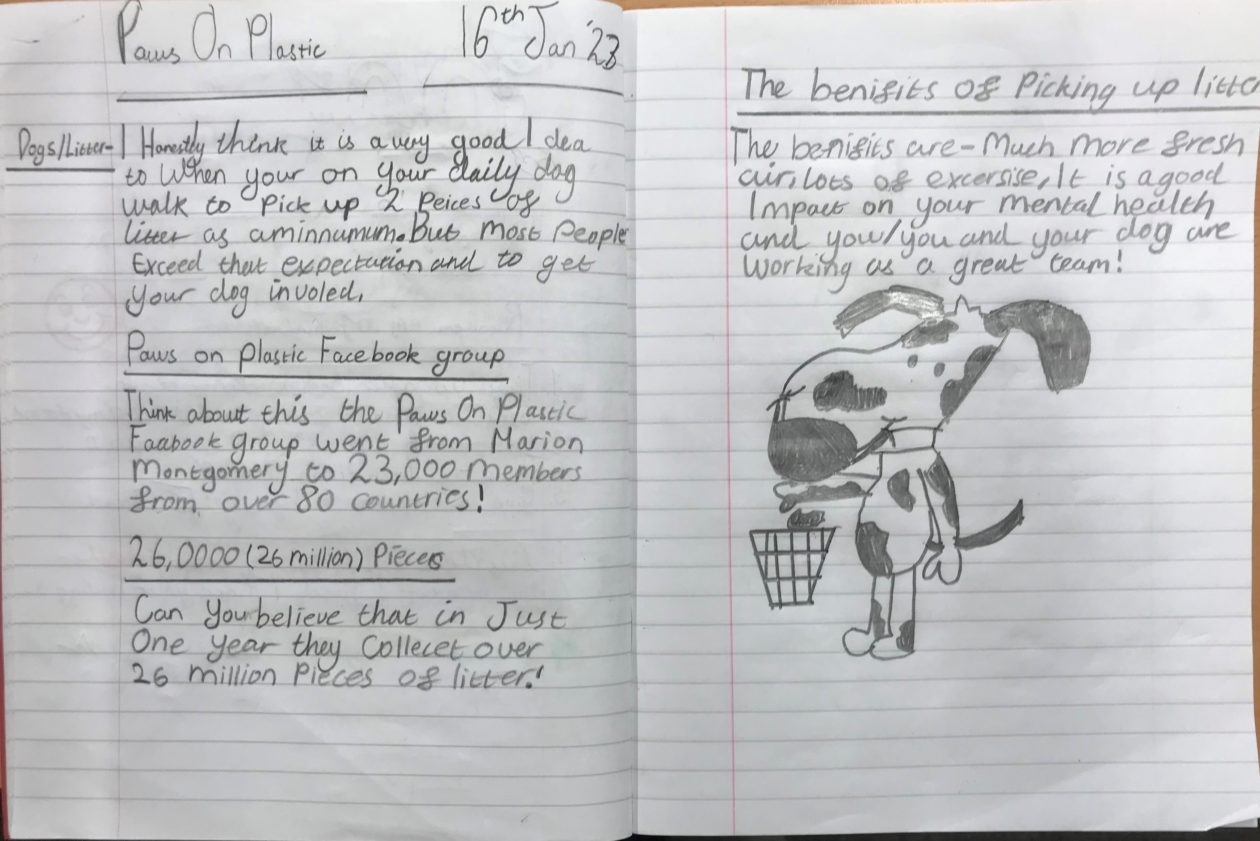 Paws On Plastic 16th Jan '23
Dogs/Litter- I Honestly think it is a very good Idea
to When your on your daily dog
walk to Pick up 2 Peices of
litter as aminnumum. But most People
Exceed that expectation and to get
your dog involed.
Paws on plastic Facebook group
Think about this the Paws On Plastic
Faabook group went from Marion
Montgomery to 23,000 members
from over 80 countries!
26,0000 (26 million) Pieces
Can you believe that in Just
One year they Collecet over
26 million Pieces of litter!
The benifits of Picking up litte
The benifits are - Much more fresh
air, lots of excersise, It is a good
Impact on your mental health
and you/you and your dog are
Working as a great team!